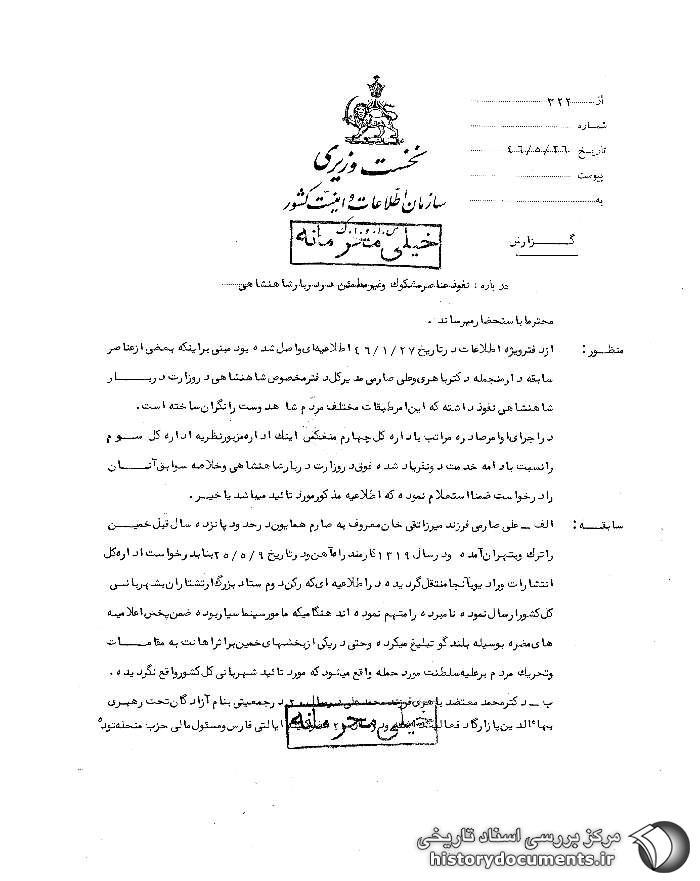 از ۳۲۲
شماره
تاریخ ۴۶/۵/۲۶
پیوست
به
نخست وزیری
سازمان اطلاعات و امنیت کشور
س.ا.و.ا.ک
خیلی محرمانه
گزارش
درباره : نفوذ عناصر مشکوک و غیر مطمئن در دربار شاهنشاهی
محترما باستحضار میرساند .
منظور : از دفتر ویژه اطلاعات در تاریخ ۴۶/۱/۲۷ اطلاعیه‌ای واصل شده بود مبنی بر اینکه بعضی از عناصر
سابقه دار منجمله دکتر باهری و علی صارمی مدیرکل دفتر مخصوص شاهنشاهی در وزارت دربار
شاهنشاهی نفوذ داشته که این امر طبقات مختلف مردم شاهدوست را نگران ساخته است .
در اجرای اوامر صادره مراتب باداره کل چهارم منعکس اینک اداره مزبور نظریه اداره کل سوم
را نسبت بادامه خدمت دو نفر یاد شده فوق در وزارت دربار شاهنشاهی و خلاصه سوابق آنان
را درخواست ضمنا استعلام نموده که اطلاعیه مذکور مورد تائید میباشد یا خیر .
سابقه : الف ـ علی صارمی فرزند میرزا تقی خان معروف به صارم همایون در حدود پانزده سال قبل خمین
را ترک و بتهران آمده و در سال ۱۳۱۹ کارمند راه‌آهن و در تاریخ ۲۵/۵/۹ بنا بدرخواست اداره کل
انتشارات و رادیو بآنجا منتقل گردیده در اطلاعیه ای که رکن دوم ستاد بزرگ ارتشتاران بشهربانی
کل کشور ارسال نموده نامبرده را متهم نموده اند هنگامیکه مامور سینما سیار بوده ضمن پخش اعلامیه
های مضره بوسیله بلندگو تبلیغ میکرده و حتی در یکی از بخشهای خمین بر اثر اهانت به مقامات
و تحریک مردم بر علیه سلطنت مورد حمله واقع میشود که مورد تائید شهربانی کل کشور واقع نگردیده .
ب ـ دکتر محمد معتضد باهری فرزند محمد علی در سال ۲۰ در جمعیتی بنام آزادگان تحت رهبری
بهاءالدین پازارگاد فعالیت ایالتی فارس و مسئول مالی حزب منحله توده
خیلی محرمانه
مرکز بررسی اسناد تاریخی
historydocuments.ir